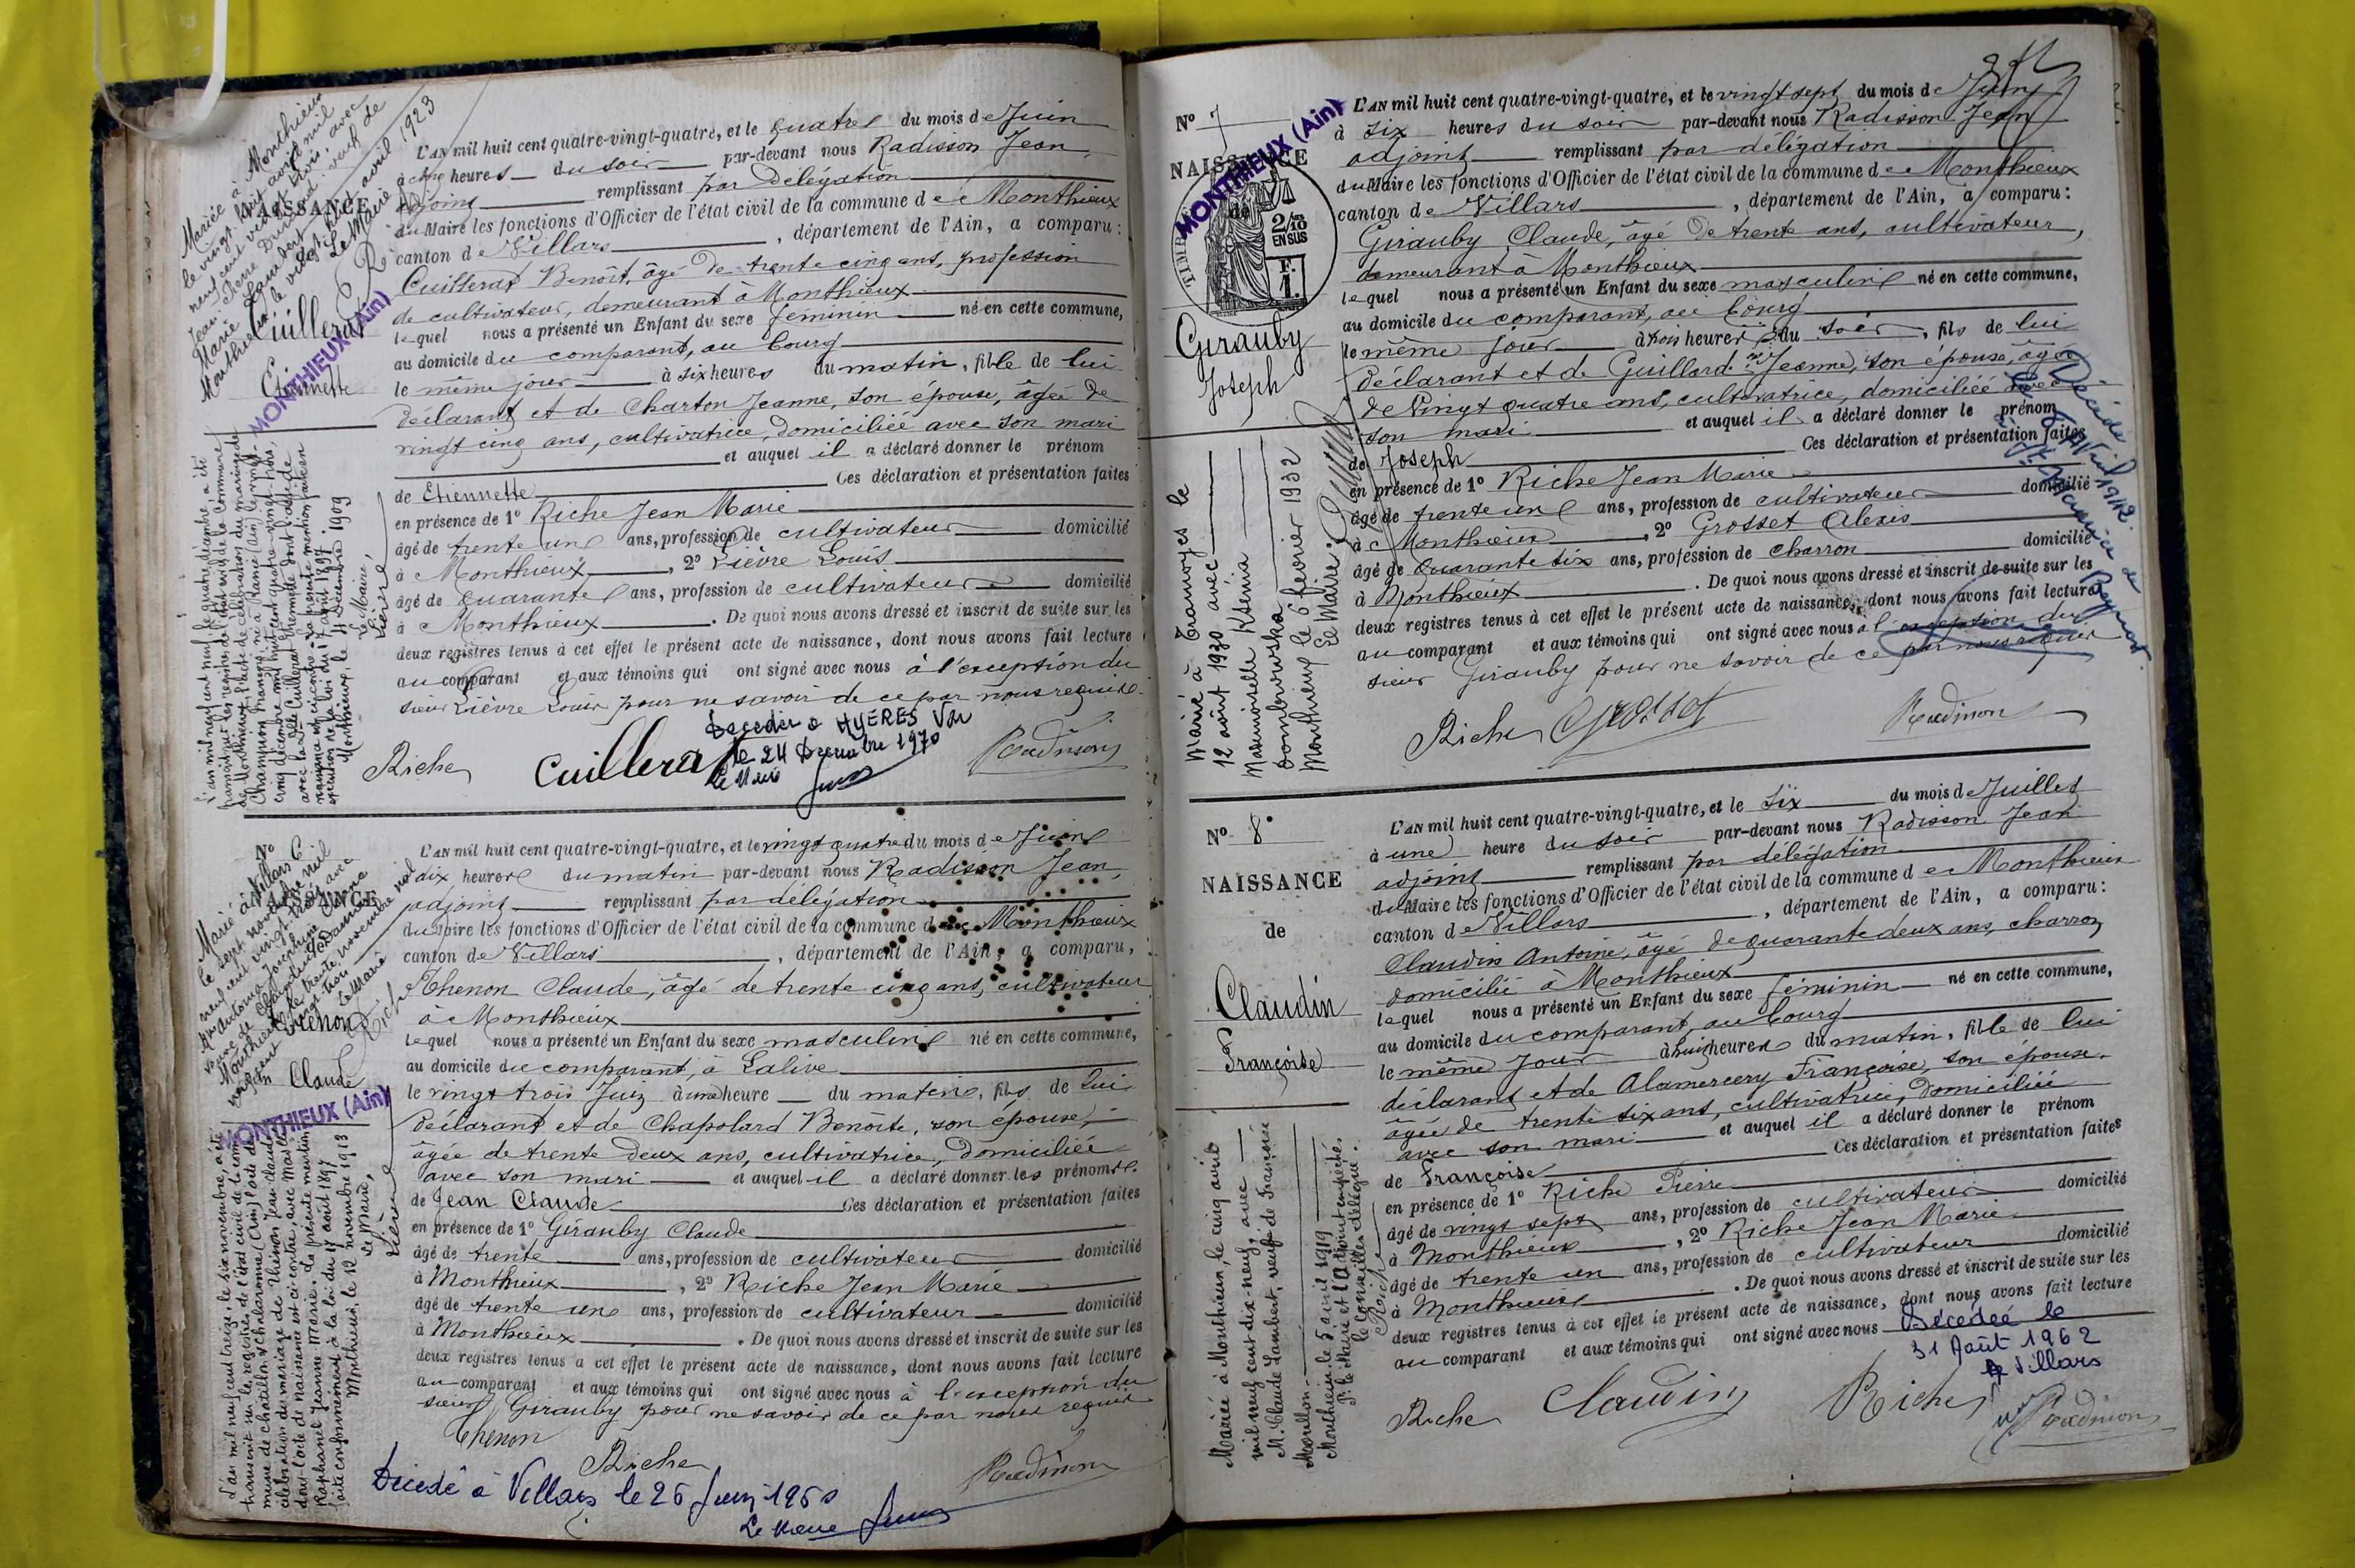 Mariée à Monthieux
le vingt huit avril mil
neuf cent vingt trois, avec
Jean Pierre Durand veuf de
Marie Lambert
Monthieux le vingt huit avril 1923
Le Maire
NAISSANCE
Cuillerat
Etiennette
MONTHIEUX (Ain)
L'AN mil huit cent quatre-vingt-quatre, et le quatre du mois de Juin
à heures du soir par-devant nous Radisson Jean,
adjoint remplissant par délégation
du Maire les fonctions d'Officier de l'état civil de la commune de Monthieux
canton de Villars, département de l'Ain, a comparu:
Cuillerat Benoît, âgé de trente cinq ans, profession
de cultivateur, demeurant à Monthieux
lequel nous a présenté un Enfant du sexe féminin né en cette commune,
au domicile du comparant, au bourg
le même jour à six heures du matin, fille de lui
déclarant et de Charton Jeanne, son épouse, âgée de
vingt cinq ans, cultivatrice, domiciliée avec son mari
et auquel il a déclaré donner le prénom
de Etiennette Ces déclaration et présentation faites
en présence de 1º Riche Jean Marie
âgé de trente un ans, profession de cultivateur domicilié
à Monthieux, 2º Lièvre Louis
âgé de quarante ans, profession de cultivateur domicilié
à Monthieux. De quoi nous avons dressé et inscrit de suite sur les
deux registres tenus à cet effet le présent acte de naissance, dont nous avons fait lecture
au comparant et aux témoins qui ont signé avec nous à l'exception du
sieur Lièvre Louis pour ne savoir de ce par nous requis
Riche Cuillerat Radisson
Décédée à HYÈRES Var
le 24 Décembre 1970
Le Maire
L'an mil neuf cent neuf, le quatre décembre a été
transcrit sur les registres de l'état civil de la commune
de Monthieux, l'acte de célébration du mariage de
Champion François, né à Rancé (Ain) le vingt-
cinq décembre mil huit cent quatre-vingt-trois,
avec la Dlle Cuillerat Etiennette dont l'acte de
naissance est ci-contre. La présente mention faite en
exécution de la loi du 17 août 1897.
Monthieux, le 4 décembre 1909
Le Maire,
Lièvre
Marié à Villars
le sept novembre mil
neuf cent vingt trois avec
Antonia Joséphine
veuve de
Monthieux le trente novembre mil
neuf cent vingt-trois
Le Maire
Riche
NAISSANCE
Thenon
Jean Claude
MONTHIEUX (Ain)
L'AN mil huit cent quatre-vingt-quatre, et le vingt quatre du mois de Juin
à dix heures du matin par-devant nous Radisson Jean,
adjoint remplissant par délégation
du Maire les fonctions d'Officier de l'état civil de la commune de Monthieux
canton de Villars, département de l'Ain, a comparu,
Thenon Claude, âgé de trente cinq ans, cultivateur
à Monthieux
lequel nous a présenté un Enfant du sexe masculin né en cette commune,
au domicile du comparant, à Lalive
le vingt trois Juin à une heure du matin, fils de lui
déclarant et de Chapolard Benoîte, son épouse,
âgée de trente deux ans, cultivatrice, domiciliée
avec son mari et auquel il a déclaré donner les prénoms
de Jean Claude Ces déclaration et présentation faites
en présence de 1º Girauby Claude
âgé de trente ans, profession de cultivateur domicilié
à Monthieux, 2º Riche Jean Marie
âgé de trente un ans, profession de cultivateur domicilié
à Monthieux. De quoi nous avons dressé et inscrit de suite sur les
deux registres tenus à cet effet le présent acte de naissance, dont nous avons fait lecture
au comparant et aux témoins qui ont signé avec nous à l'exception du
sieur Girauby pour ne savoir de ce par nous requis
Thenon
Riche Radisson
Décédé à Villars le 26 Juin 1960
Le Maire
L'an mil neuf cent treize, le six novembre, a été
transcrit sur les registres de l'état civil de la com-
mune de Chatillon s/Chalaronne (Ain) l'acte de
célébration du mariage de Thenon Jean Claude
dont l'acte de naissance est ci-contre, avec Mlle
Raphanel Jeanne Marie. La présente mention
faite conformément à la loi du 17 août 1897
Monthieux, le 12 novembre 1913
Le Maire,
Lièvre
Nº 7
NAISSANCE
de
TIMBRE
2/10
EN SUS
F.
1.
MONTHIEUX (Ain)
Girauby
Joseph
L'AN mil huit cent quatre-vingt-quatre, et le vingt sept du mois de Juin
à six heures du soir par-devant nous Radisson Jean
adjoint remplissant par délégation
du Maire les fonctions d'Officier de l'état civil de la commune de Monthieux
canton de Villars, département de l'Ain, a comparu:
Girauby Claude, âgé de trente ans, cultivateur,
demeurant à Monthieux
lequel nous a présenté un Enfant du sexe masculin né en cette commune,
au domicile du comparant, au bourg
le même jour à trois heures du soir, fils de lui
déclarant et de Guillard Jeanne, son épouse, âgée
de vingt quatre ans, cultivatrice, domiciliée avec
son mari et auquel il a déclaré donner le prénom
de Joseph Ces déclaration et présentation faites
en présence de 1º Riche Jean Marie
âgé de trente un ans, profession de cultivateur domicilié
à Monthieux, 2º Grosset Alexis
âgé de quarante six ans, profession de charron domicilié
à Monthieux. De quoi nous avons dressé et inscrit de suite sur les
deux registres tenus à cet effet le présent acte de naissance, dont nous avons fait lecture
au comparant et aux témoins qui ont signé avec nous à l'exception du
sieur Girauby pour ne savoir de ce par nous requis
Riche Grosset Radisson
Décédé
le Avril 1942
à St Maurice de Beynost.
Marié à Tramoyes le
12 août 1930 avec
Mademoiselle Ksénia
Dombrowska
Monthieux le 6 février 1932
Le Maire:
Nº 8
NAISSANCE
de
Claudin
Françoise
L'AN mil huit cent quatre-vingt-quatre, et le six du mois de Juillet
à une heure du soir par-devant nous Radisson Jean
adjoint remplissant par délégation
du Maire les fonctions d'Officier de l'état civil de la commune de Monthieux
canton de Villars, département de l'Ain, a comparu:
Claudin Antoine, âgé de quarante deux ans, charron
domicilié à Monthieux
lequel nous a présenté un Enfant du sexe féminin né en cette commune,
au domicile du comparant, au bourg
le même jour à huit heures du matin, fille de lui
déclarant et de Alamercery Françoise, son épouse,
âgée de trente six ans, cultivatrice, domiciliée
avec son mari et auquel il a déclaré donner le prénom
de Françoise Ces déclaration et présentation faites
en présence de 1º Riche Pierre
âgé de vingt sept ans, profession de cultivateur domicilié
à Monthieux, 2º Riche Jean Marie
âgé de trente un ans, profession de cultivateur domicilié
à Monthieux. De quoi nous avons dressé et inscrit de suite sur les
deux registres tenus à cet effet le présent acte de naissance, dont nous avons fait lecture
au comparant et aux témoins qui ont signé avec nous
Décédée le
31 Août 1962
à Villars
Riche Claudin Riche Radisson
Mariée à Monthieux, le cinq avril
mil neuf cent dix-neuf, avec
M. Claude Lambert, veuf de Françoise
Mouillon.
Monthieux, le 5 avril 1919
Pr. le Maire et l'Adjoint empêchés,
le Conseiller délégué.
Riche